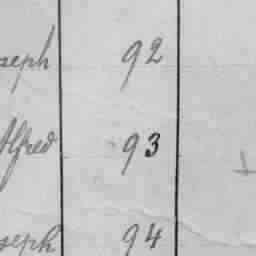 seph 92
Alfred 93
seph 94